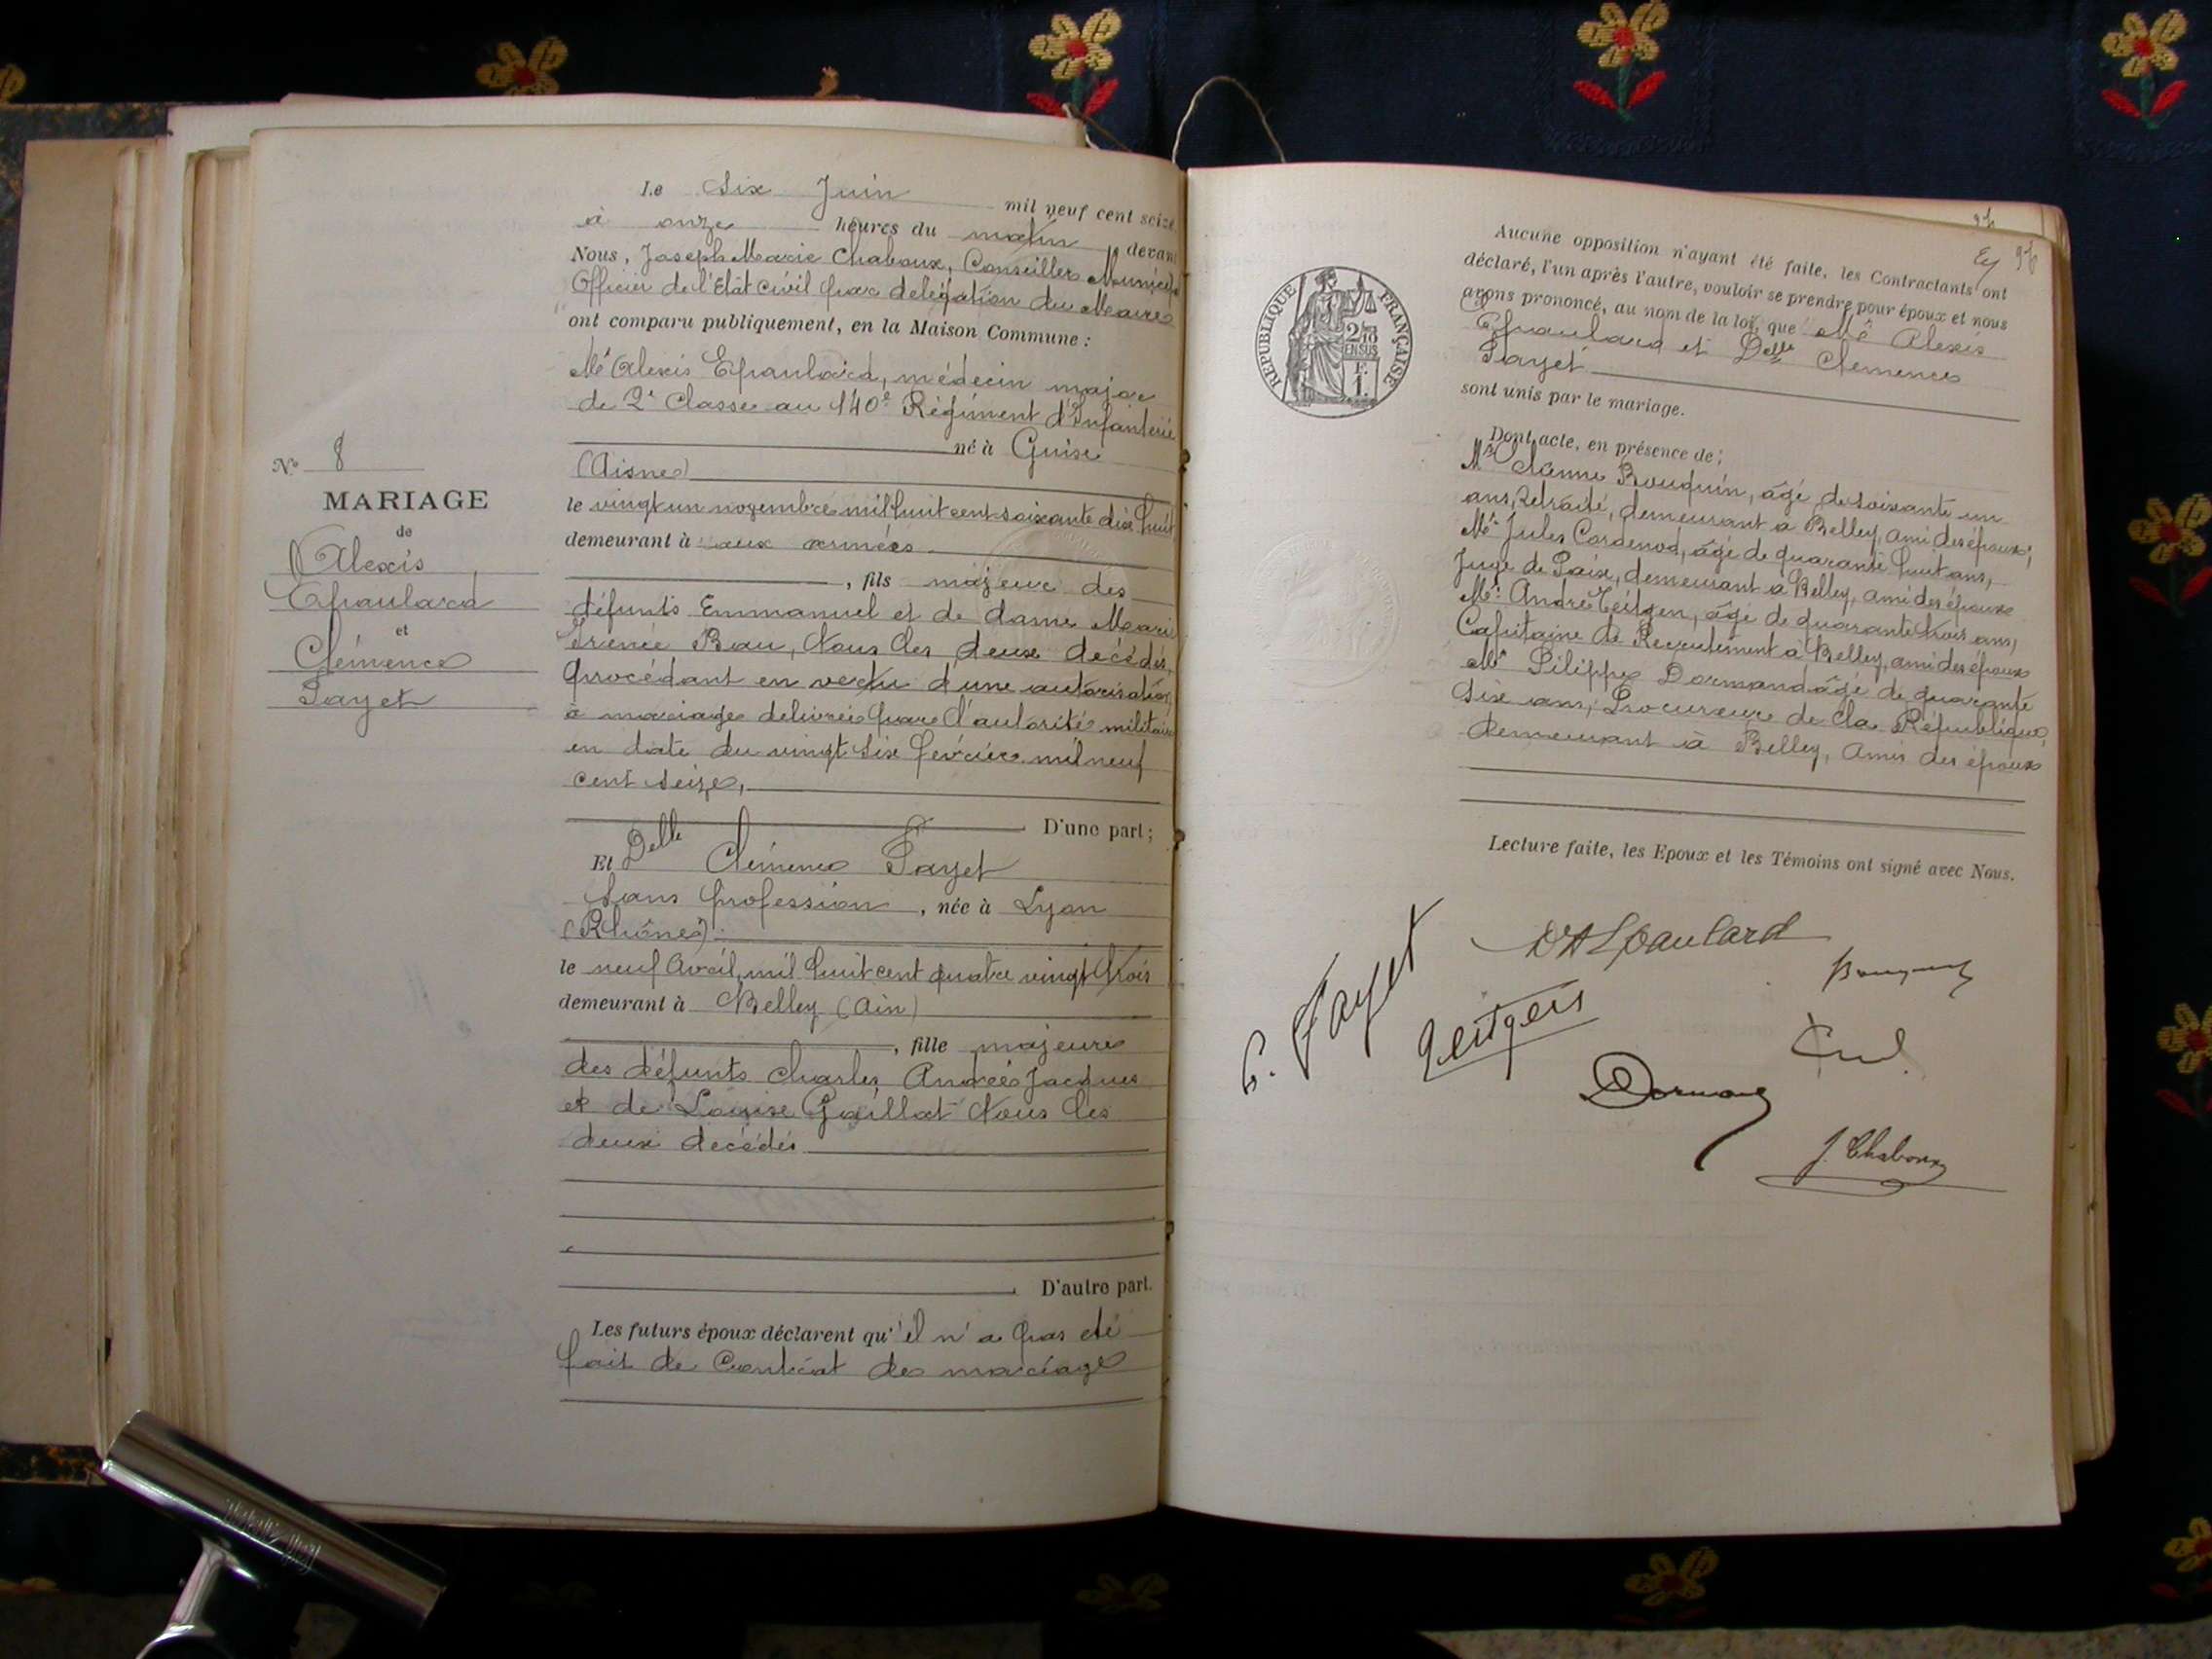 Le six Juin mil neuf cent seize
à onze heures du matin, devant
Nous, Joseph Marie Chaboux, Conseiller Municipal
Officier de l'Etat civil par délégation du Maire
ont comparu publiquement, en la Maison Commune :
Mr Alexis Epaulard, médecin major
de 2e Classe au 140e Régiment d'Infanterie
né à Guise
(Aisne)
le vingt un novembre mil huit cent soixante dix huit
demeurant à aux armées
, fils majeur des
défunts Emmanuel et de dame Marie
Irénée Bau, tous les deux décédés,
procédant en vertu d'une autorisation
à mariage delivrée par l'autorité militaire
en date du vingt six février mil neuf
cent seize,
D'une part ;
Et Delle Clémence Fayet
sans profession, née à Lyon
(Rhône)
le neuf Avril, mil huit cent quatre vingt trois
demeurant à Belley (Ain)
, fille majeure
des défunts Charles, André Jacques
et de Louise Gaillat tous les
deux décédés
D'autre part.
Les futurs époux déclarent qu'il n'a pas été
fait de Contrat de mariage
No 8
MARIAGE
de
Alexis
Epaulard
et
Clémence
Fayet
Aucune opposition n'ayant été faite, les Contractants ont
déclaré, l'un après l'autre, vouloir se prendre pour époux et nous
avons prononcé, au nom de la loi, que Mr Alexis
Epaulard et Delle Clémence
Fayet
sont unis par le mariage.
RÉPUBLIQUE FRANÇAISE
2/10
EN SUS
F.
1.
Dont acte, en présence de ;
Mr Etienne Bouquin, âgé de soixante un
ans, retraité, demeurant à Belley, ami des époux ;
Mr Jules Cordenod, âgé de quarante huit ans,
Juge de Paix, demeurant à Belley, ami des époux
Mr André Teitgen, âgé de quarante trois ans,
Capitaine de Recrutement à Belley, ami des époux
Mr Pilippe Dormand âgé de quarante
six ans, Procureur de la République,
demeurant à Belley, amis des époux
Lecture faite, les Epoux et les Témoins ont signé avec Nous.
Dr A Epaulard
C. Fayet
Teitgen
Bouquin
Dormand
J. Chaboux